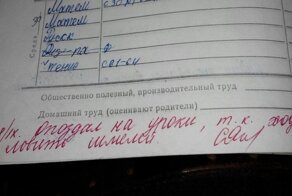 Среда
Матем
Матем
Русск
Физ-ра ф
чтение
Общественно полезный, производительный труд
Домашний труд (оценивают родители)
опоздал на уроки, т. к. ход
ловить шмелей